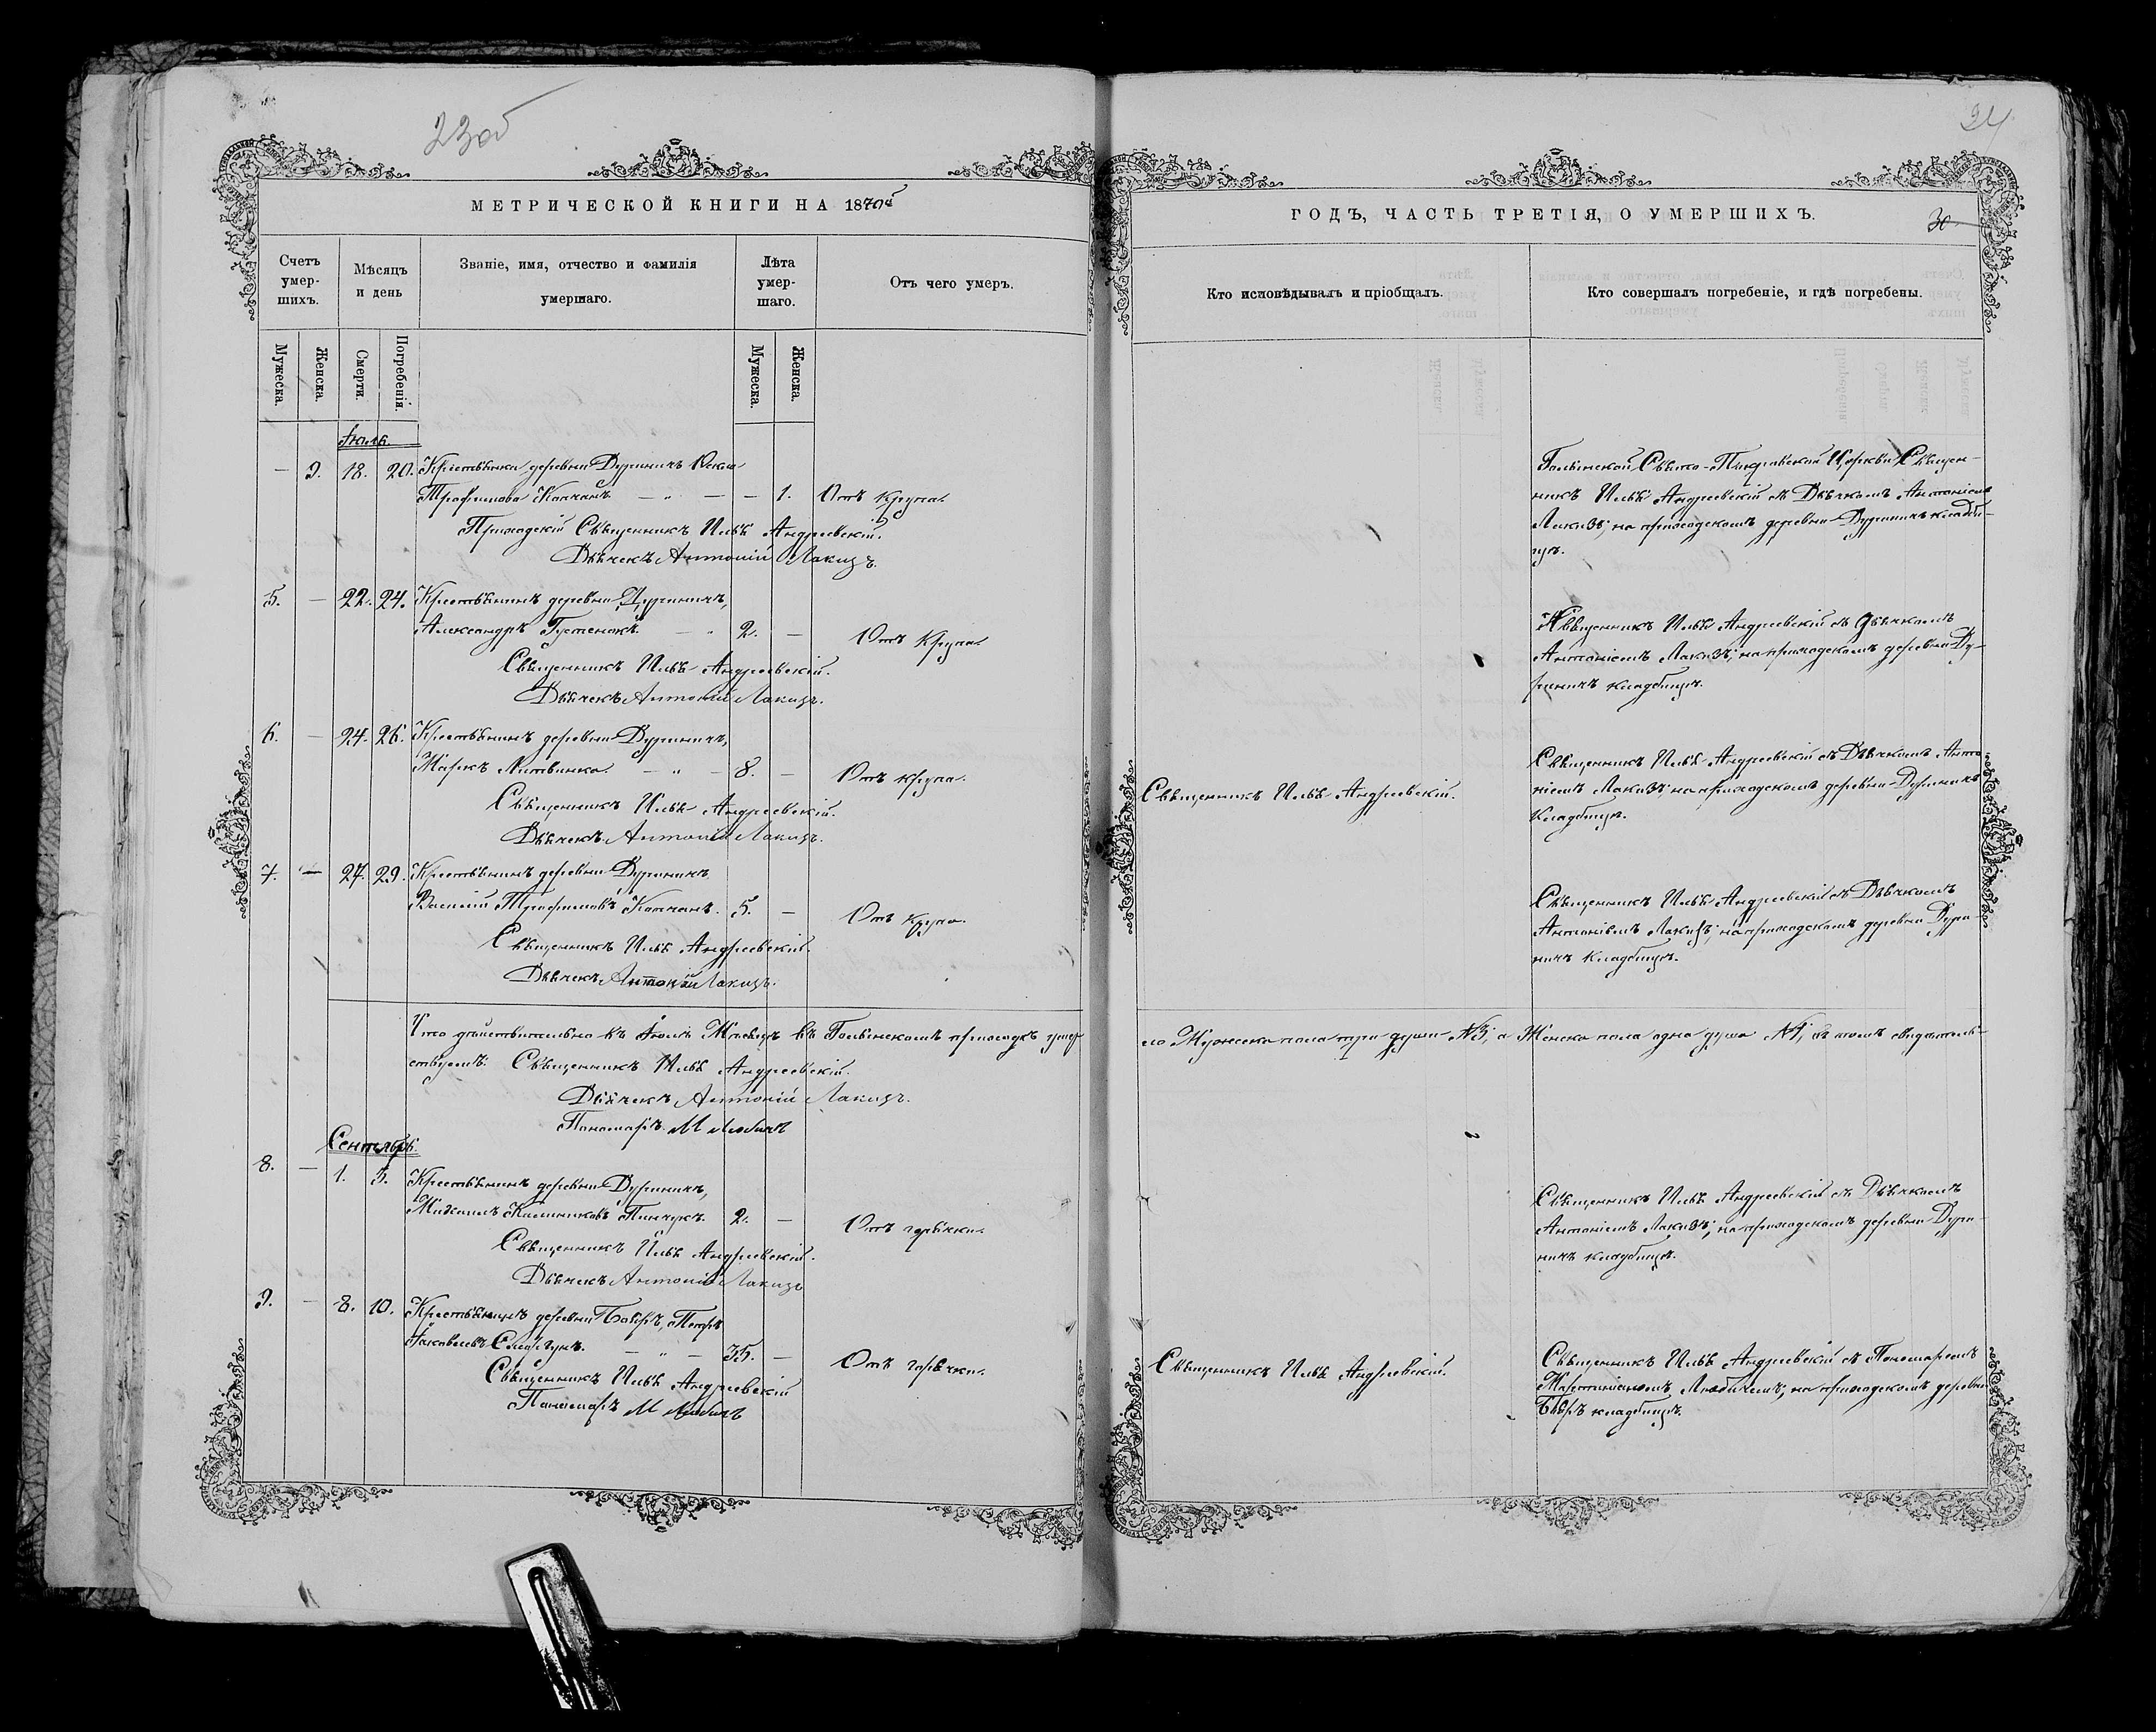 23об
МЕТРИЧЕСКОЙ КНИГИ НА 1870й
Счетъ умер-шихъ.
Мѣсяцъ и день
Званіе, имя, отчество и фамилія умершаго.
Лѣта умер-шаго.
Отъ чего умеръ.
Мужеска.
Женска.
Смерти.
Погребенія.
Мужеска.
Женска.
Іюля.
— 2. 18. 20. Крестьянка деревни Дуриничъ
Трофимова Колчанъ — „ — — 1. Отъ крупа.
Приходскій Священникъ Илья Андреевскій.
Дьячекъ Антоній Лакизъ.
5. — 22. 24. Крестьянинъ деревни Дуриничъ,
Александръ — „ 2. — Отъ крупа.
Священникъ Илья Андреевскій.
Дьячекъ Антоній Лакизъ.
6. — 24. 26. Крестьянинъ деревни Дуриничъ,
Маркъ Литвинко. — „ — 8. — Отъ крупа.
Священникъ Илья Андреевскій.
Дьячекъ Антоній Лакизъ.
7. — 27. 29. Крестьянинъ деревни Дуриничъ
Василій Трофимовъ Колчанъ. 5. — Отъ крупа.
Священникъ Илья Андреевскій.
Дьячекъ Антоній Лакизъ.
Что дѣйствительно въ Іюлѣ Мѣсяцѣ въ приходѣ умер
ствуемъ: Священникъ Илья Андреевскій.
Дьячекъ Антоній Лакизъ.
Пономарь М Любичъ
Сентября
8. — 1. 3. Крестьянинъ деревни Дуриничъ,
Михаилъ Калиниковъ Пинчукъ. 2. — Отъ горячки.
Священникъ Илья Андреевскій.
Дьячекъ Антоній Лакизъ
9. — 8. 10. Крестьянинъ деревни Боверъ, Петръ
Іаковлевъ — „ — 35. — Отъ горячки.
Священникъ Илья Андреевскій
Пономарь М Любичъ
24
ГОДЪ, ЧАСТЬ ТРЕТІЯ, О УМЕРШИХЪ.
30
Кто исповѣдывалъ и пріобщалъ.
Кто совершалъ погребеніе, и гдѣ погребены.
Свято-Покровской Церкви Священ-
никъ Илья Андреевскій съ Дьячкомъ Антоніемъ
Лакизъ; на приходскомъ деревни Дуриничъ кладби-
щѣ.
Священникъ Илья Андреевскій съ Дьячкомъ
Антоніемъ Лакизъ; на приходскомъ деревни Ду-
риничъ кладбищѣ.
Священникъ Илья Андреевскій.
Священникъ Илья Андреевскій съ Дьячкомъ Анто-
ніемъ Лакизъ; на приходскомъ деревни Дуриничъ
кладбищѣ.
Священникъ Илья Андреевскій съ Дьячкомъ
Антоніемъ Лакизъ; на приходскомъ деревни Дури-
ничъ кладбищѣ.
ло Мужеска пола три души №3, а Женска пола одна душа №1, въ томъ свидѣтель-
Священникъ Илья Андреевскій съ Дьячкомъ
Антоніемъ Лакизъ; на приходскомъ деревни Дури-
ничъ кладбищѣ.
Священникъ Илья Андреевскій.
Священникъ Илья Андреевскій съ Пономаремъ
Мартиніаномъ Любичемъ; на приходскомъ деревни
Боверъ кладбищѣ.